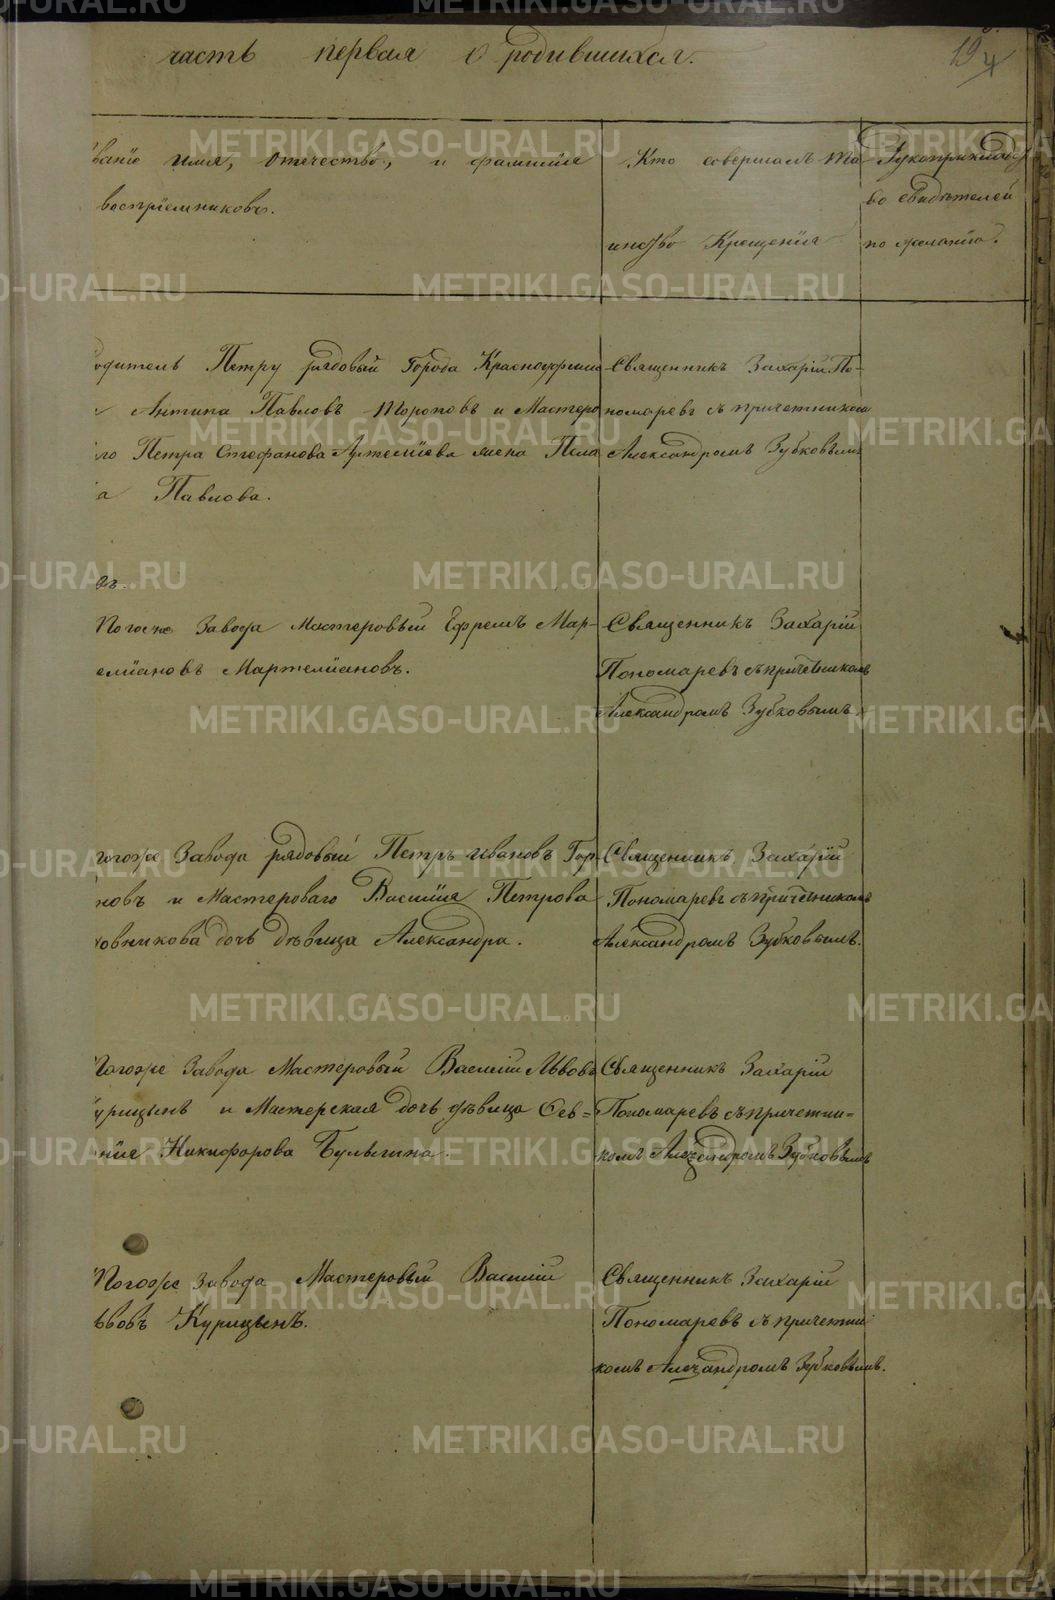 часть первая о родившихся.
194
званіе имя, отечество, и фамилія
воспріемниковъ.
Кто совершалъ та
инство Крещенія
Рукоприкладст
во свидѣтелей
по желанію.
одитель Петру рядовый Города Красноуфим
Антипа Павловъ Тороповъ и Мастеро
го Петра Стефанова Артемьева жена Пела
а Павлова.
Священникъ Захарій По-
номаревъ съ причетникомъ
Александромъ Зубковымъ
Тогоже Завода Мастеровый Ефремъ Мар-
еміановъ Мартеміановъ.
Священникъ Захарій
Пономаревъ съ причетникомъ
Александромъ Зубковымъ.
тогоже Завода рядовый Петръ Ивановъ Гор
новъ и Мастероваго Василія Петрова
овникова дочь дѣвица Александра.
Священникъ Захарій
Пономаревъ съ причетникомъ
Александромъ Зубковымъ.
Тогоже Завода Мастеровый Василій Львовъ
урицынъ и Мастерская дочь дѣвица Оев-
нія Никифорова Булыгина.
Священникъ Захарій
Пономаревъ съ причетни-
комъ Александромъ Зубковымъ
Тогоже Завода Мастеровый Василій
ьвовъ Курицынъ.
Священникъ Захарій
Пономаревъ съ причетни
комъ Александромъ Зубковымъ.
METRIKI.GASO-URAL.RU